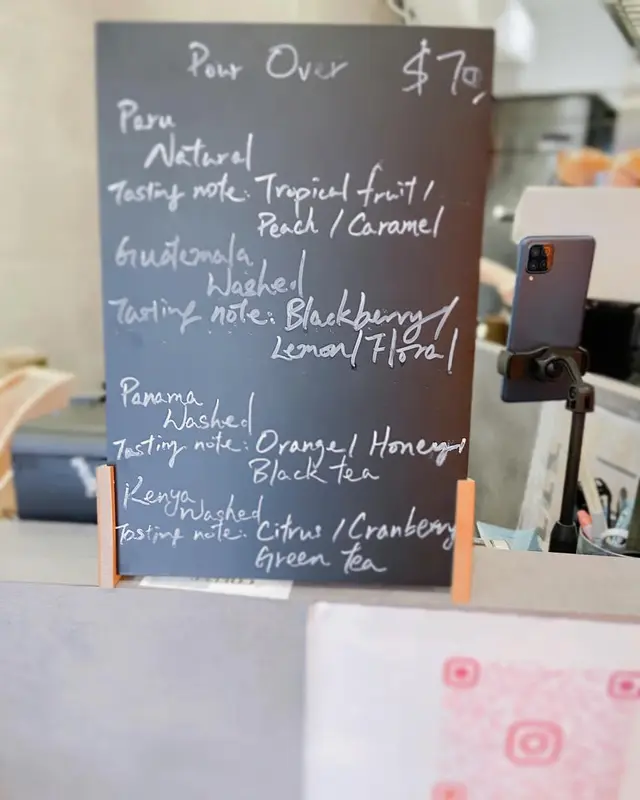 Pour Over $70
Peru
Natural
Tasting note: Tropical fruit /
Peach / Caramel
Guatemala
Washed
Tasting note: Blackberry /
Lemon / Floral
Panama
Washed
Tasting note: Orange / Honey
Black tea
Kenya
Washed
Tasting note: Citrus / Cranberry
Green tea